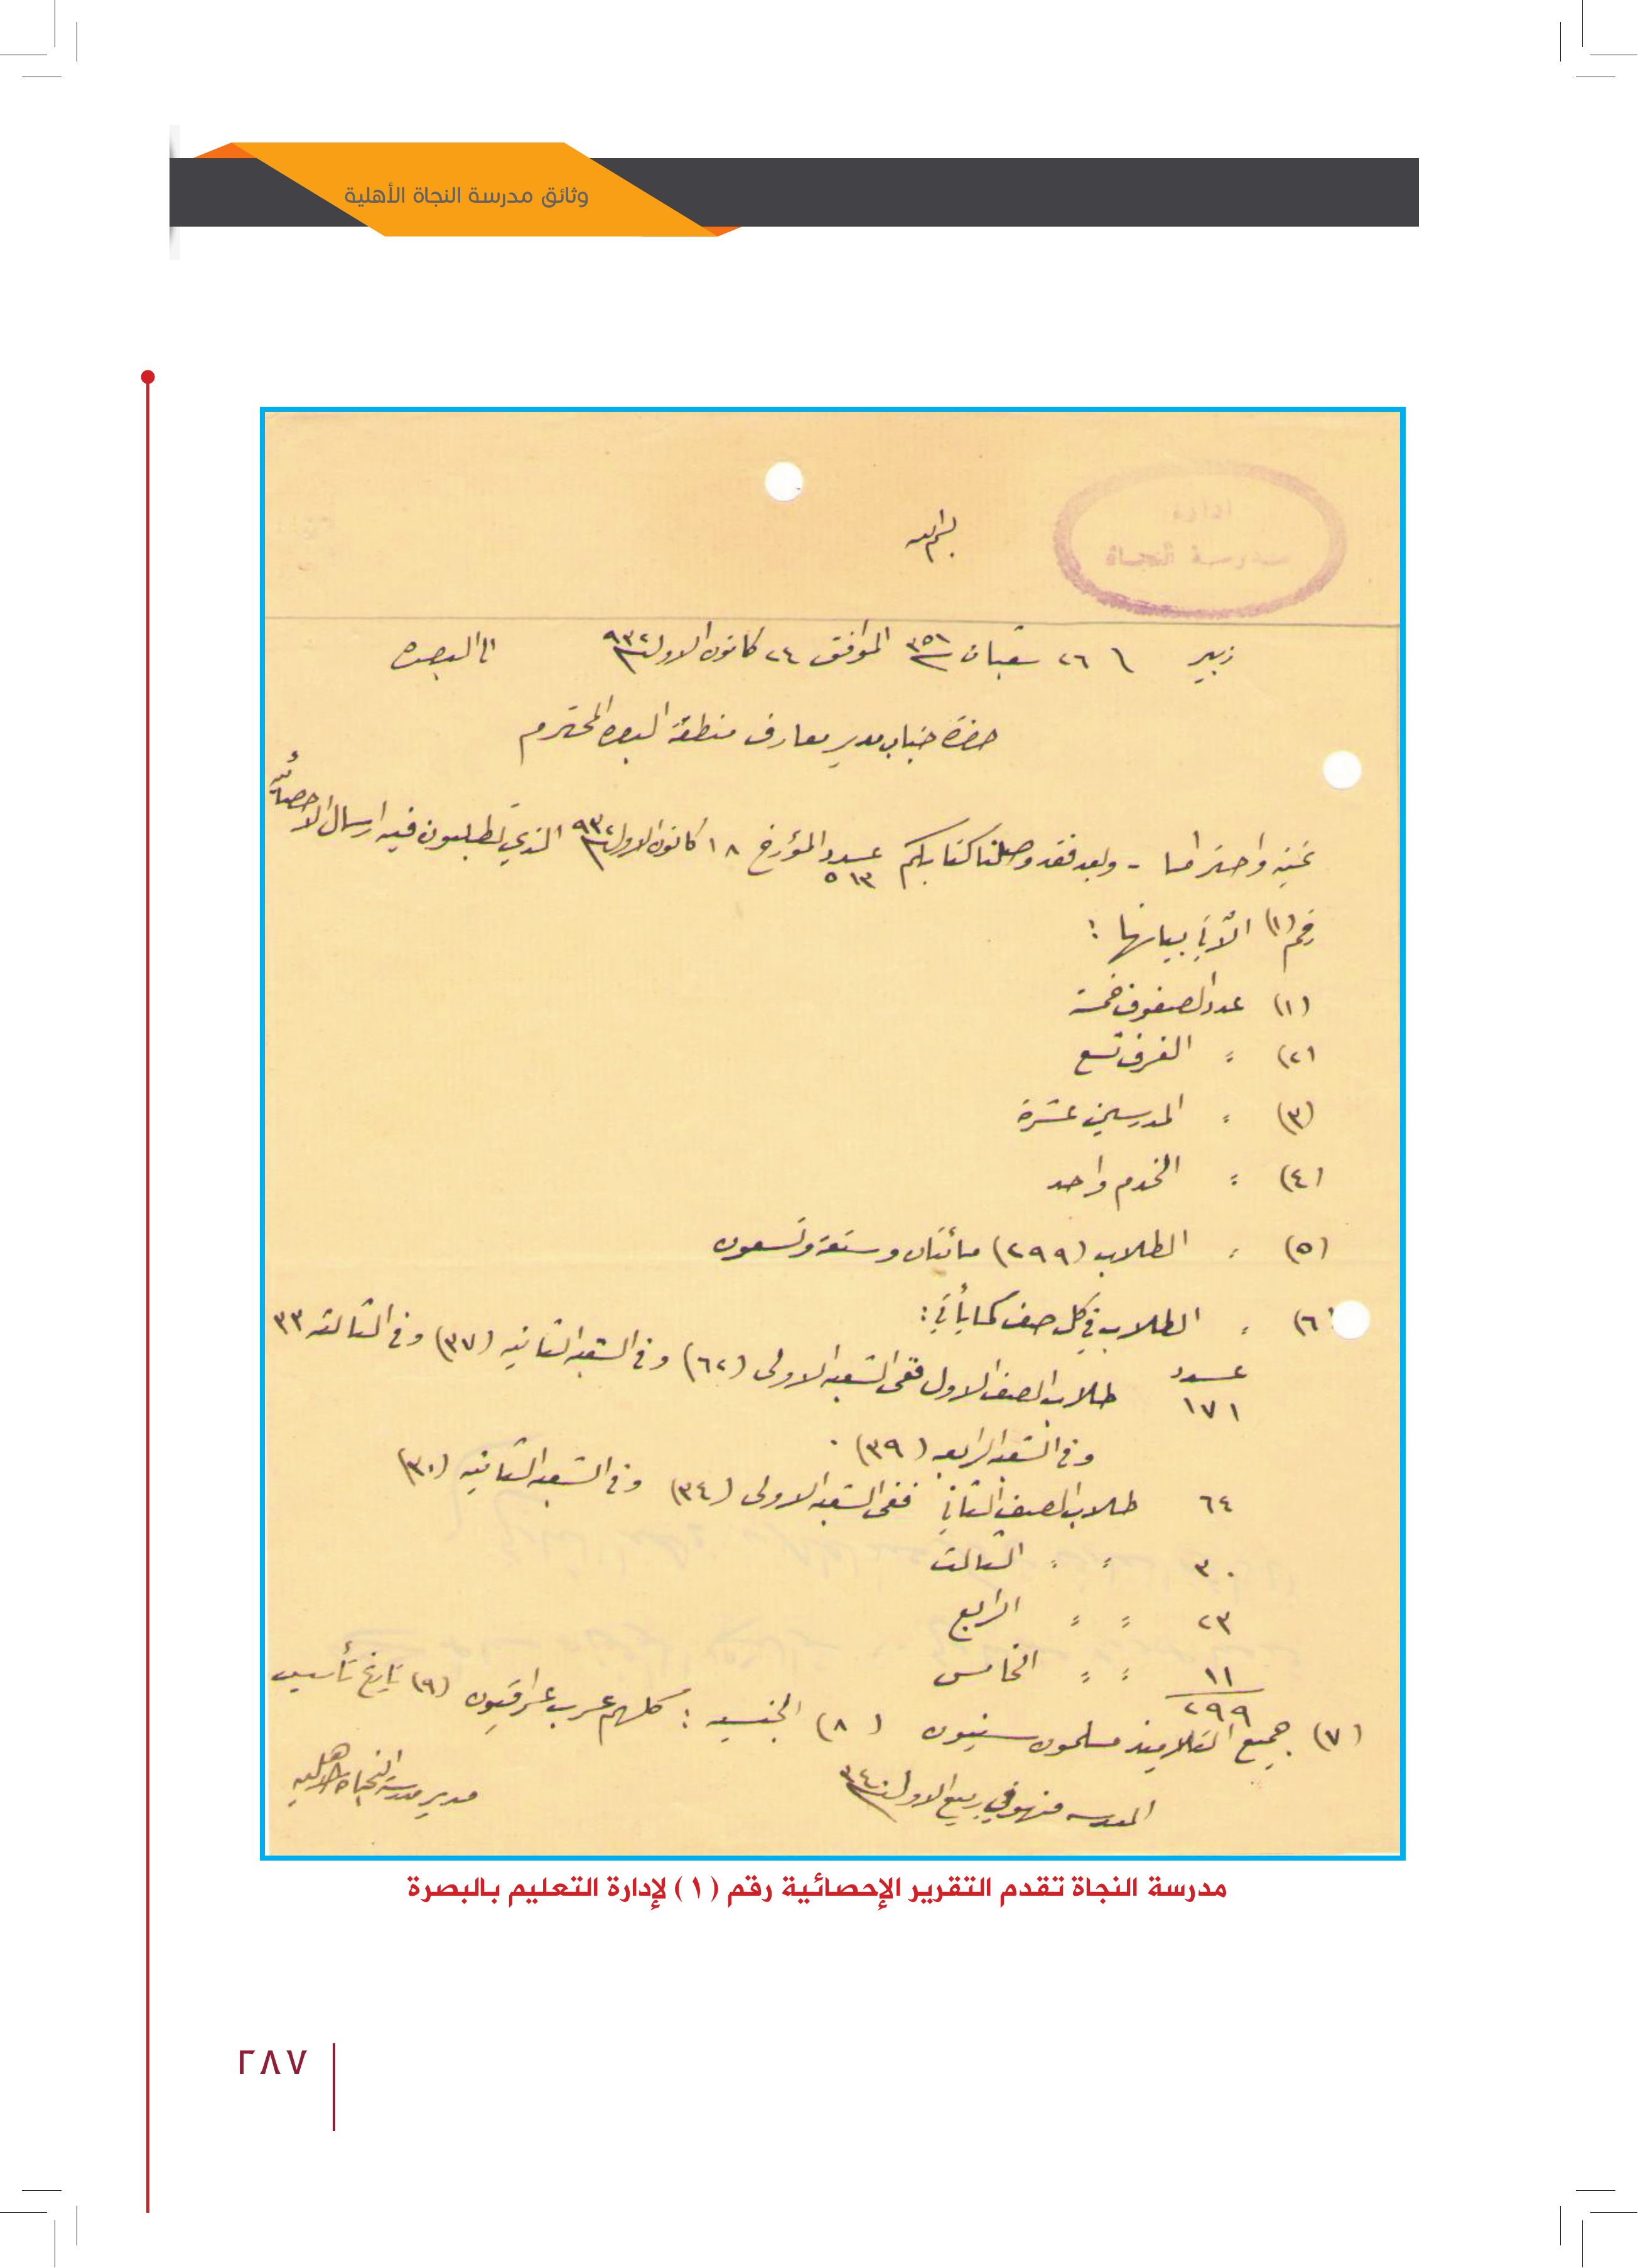 وثائق مدرسة النجاة الأهلية
ادارة
مدرسة النجاة
بسم الله
زبير \ ٢٦ شعبان ٣٥١ الموافق ٢٤ كانون الاول ٩٣٢ الى البصره
حضرة جناب مدير معارف منطقة البصره المحترم
تحية واحتراما - وبعد فقد وصلنا كتابكم عدد ٥١٣ المؤرخ ١٨ كانون الاول ٩٣٢ الذي تطلبون فيه ارسال الاحصائية
رقم (١) الآتي بيانها :
(١) عدد الصفوف خمسة
(٢) " الغرف تسع
(٣) " المدرسين عشرة
(٤) " الخدم واحد
(٥) " الطلاب (٢٩٩) مائتان وستعة وتسعون
(٦) " الطلاب في كل صف كما يأتي :
عدد
١٧١ طلاب الصف الاول ففى الشعبه الاولى (٦٢) وفى الشعبه الثانيه (٣٧) وفى الثالثه ٣٣
وفى الشعبه الرابعه (٣٩) .
٦٤ طلاب الصف الثاني ففى الشعبه الاولى (٣٤) وفى الشعبه الثانيه (٣٠)
٣٠ " " الثالث
٢٣ " " الرابع
١١ " " الخامس
٢٩٩
(٧) جميع التلاميذ مسلمون سنيون (٨) الجنسيه : كلهم عرب عراقيون (٩) تاريخ تأسيس
المدرسه منهو في ربيع الاول سنة ٣٤٠
مدير مدرسة النجاة الاهليه
مدرسة النجاة تقدم التقرير الإحصائية رقم (١) لإدارة التعليم بالبصرة
٢٨٧